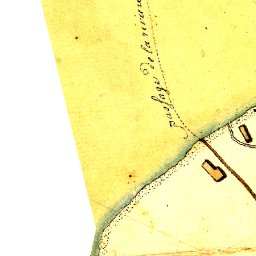 passage de la rivier